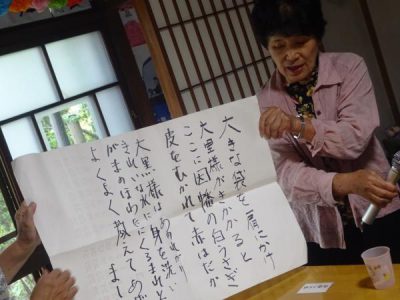 大きな袋を肩にかけ
大黒様がきかかると
ここに因幡の白うさぎ
皮をむかれて赤はだか
大黒様はあわれがり
きれいな水に身を洗い
がまのほわたにくるまれと
よくよく教えてあげ
ました